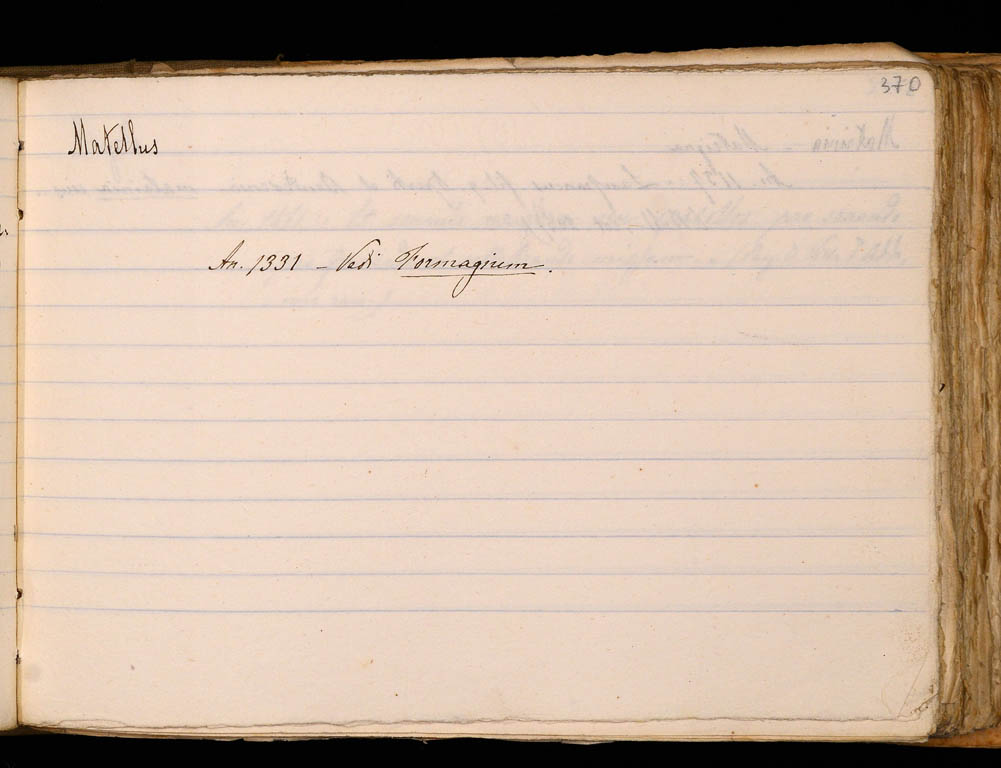 370
Matellus
An. 1331 - Vedi Formagium.